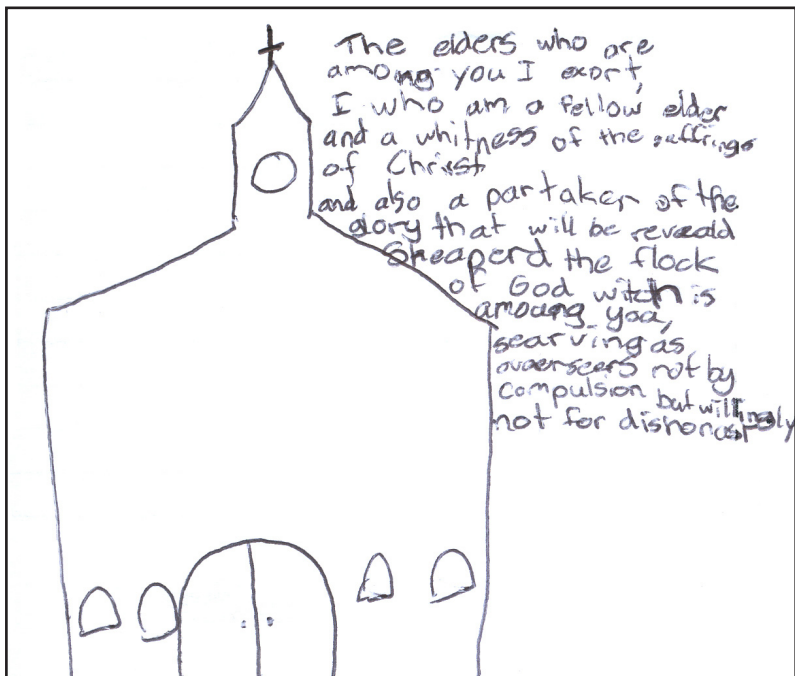 The elders who are
among you I exort,
I who am a fellow elder
and a whitness of the suffrings
of Christ
and also a partaker of the
glory that will be reveald
Sheaperd the flock
of God witch is
amoung you,
searving as
overseers not by
compulsion but willingly
not for dishonest